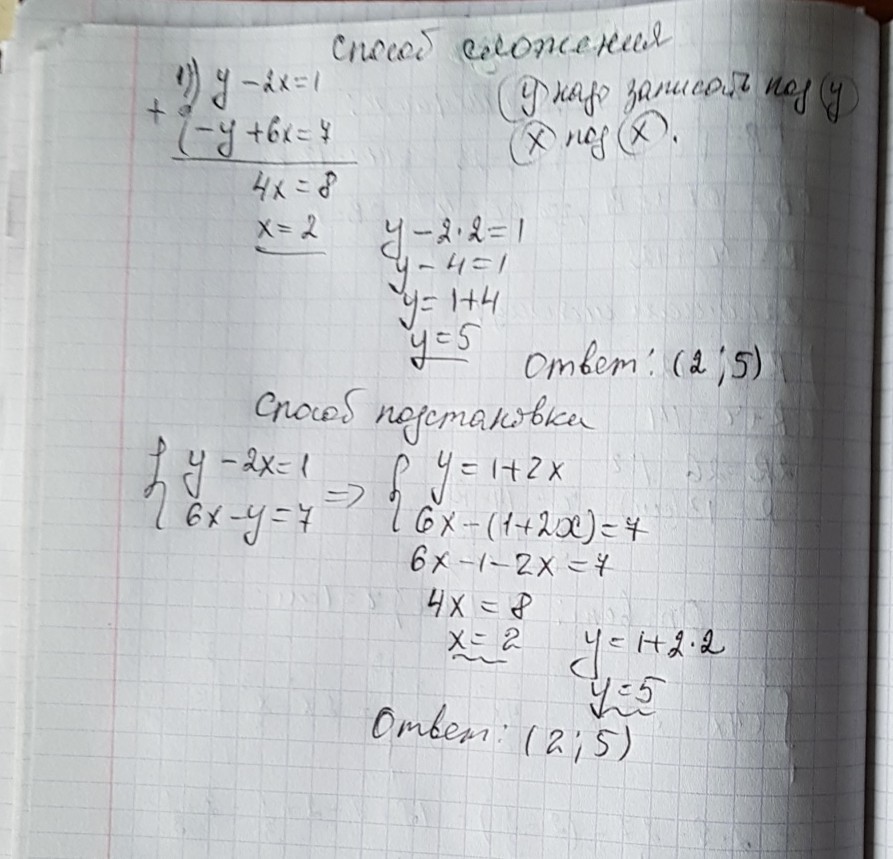 Способ сложения
1) y - 2x = 1
(y) надо записать под (y)
+ { -y + 6x = 7
(x) под (x).
4x = 8
x = 2
y - 2·2 = 1
y - 4 = 1
y = 1+4
y = 5
Ответ: (2; 5)
Способ подстановки
{ y - 2x = 1
6x - y = 7 => { y = 1+2x
6x - (1+2x) = 7
6x - 1 - 2x = 7
4x = 8
x = 2
y = 1+2·2
y = 5
Ответ: (2; 5)